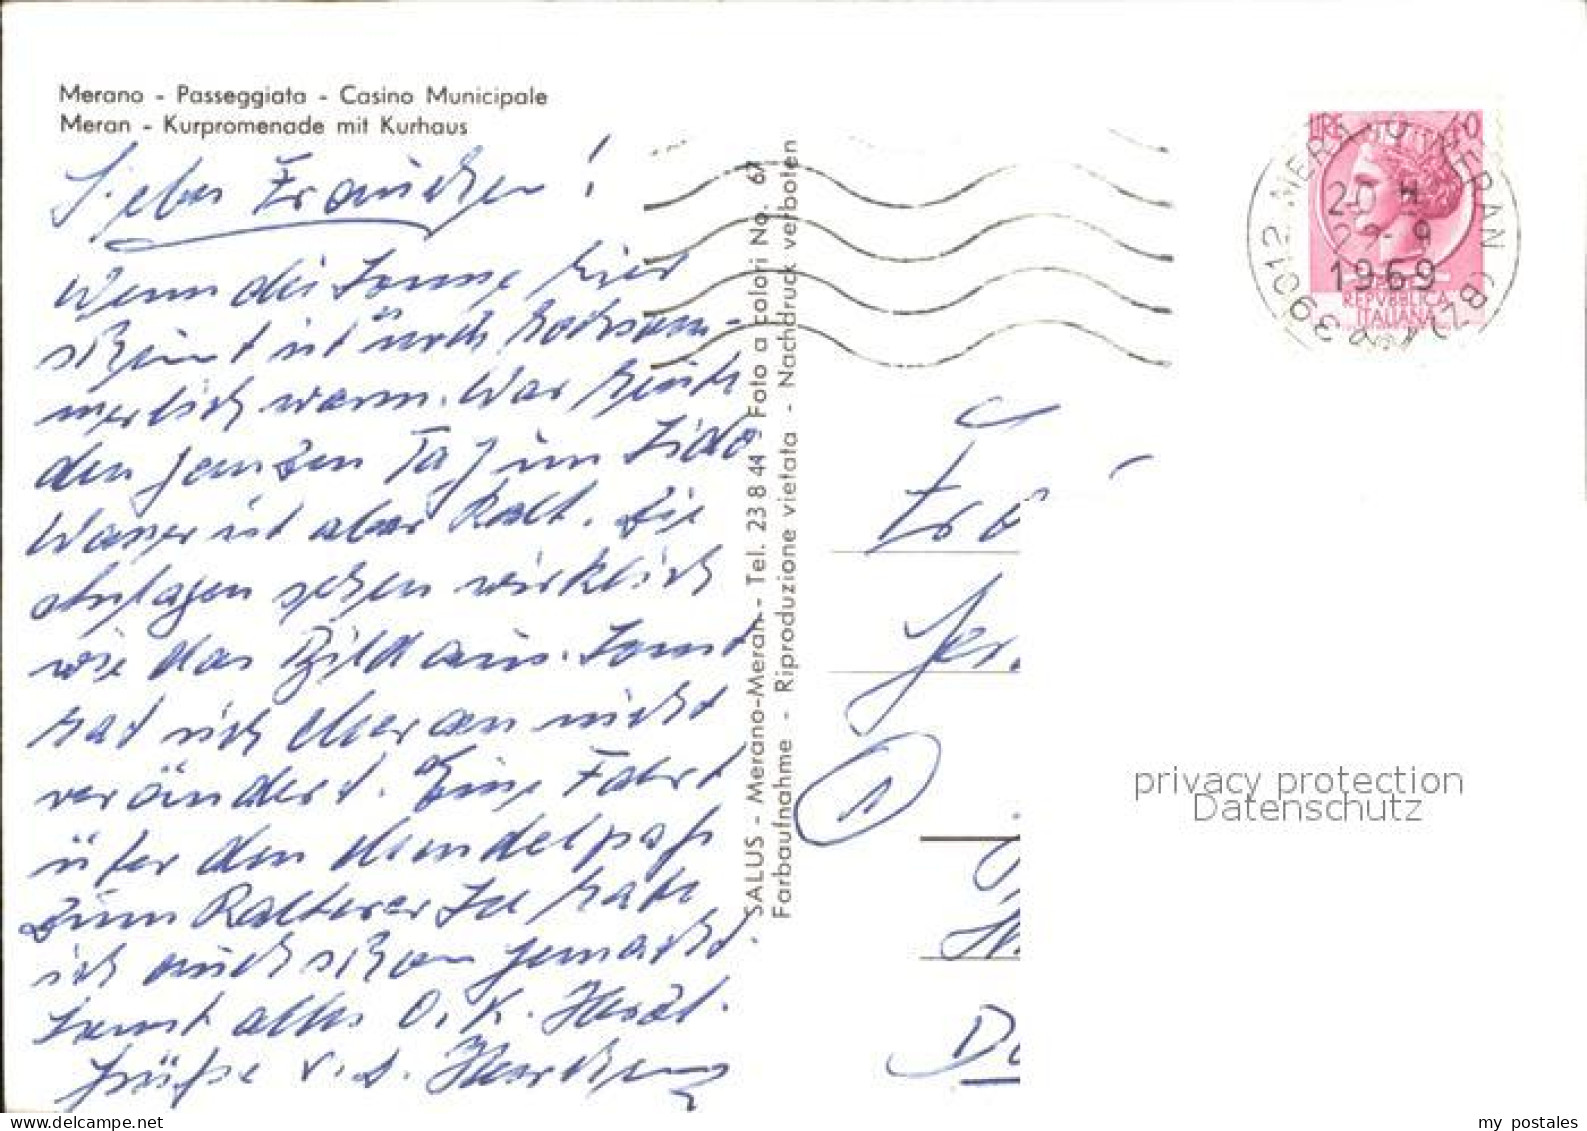 Merano - Passeggiata - Casino Municipale
Meran - Kurpromenade mit Kurhaus
Liebes Frauchen!
Wenn die Sonne hier
scheint ist es noch hochsom-
merlich warm. War heute
den ganzen Tag im Lido
Wasser ist aber kalt. Die
Anlagen sehen wirklich
wie das Bild aus. Sonst
hat sich Meran nicht
verändert. Eine Fahrt
über den Mendelpaß
zum Kalterer See habe
ich auch schon gemacht.
Sonst alles O.K. Herzl.
Grüße v. d.
SALUS - Merano-Meran - Tel. 23 8 44 - Foto a colori No. 67
Farbaufnahme - Riproduzione vietata - Nachdruck verboten
LIRE
REPVBBLICA
ITALIANA
39012 MERANO MERAN (BZ)
20 H
22-9
1969
1
privacy protection
Datenschutz
my postales